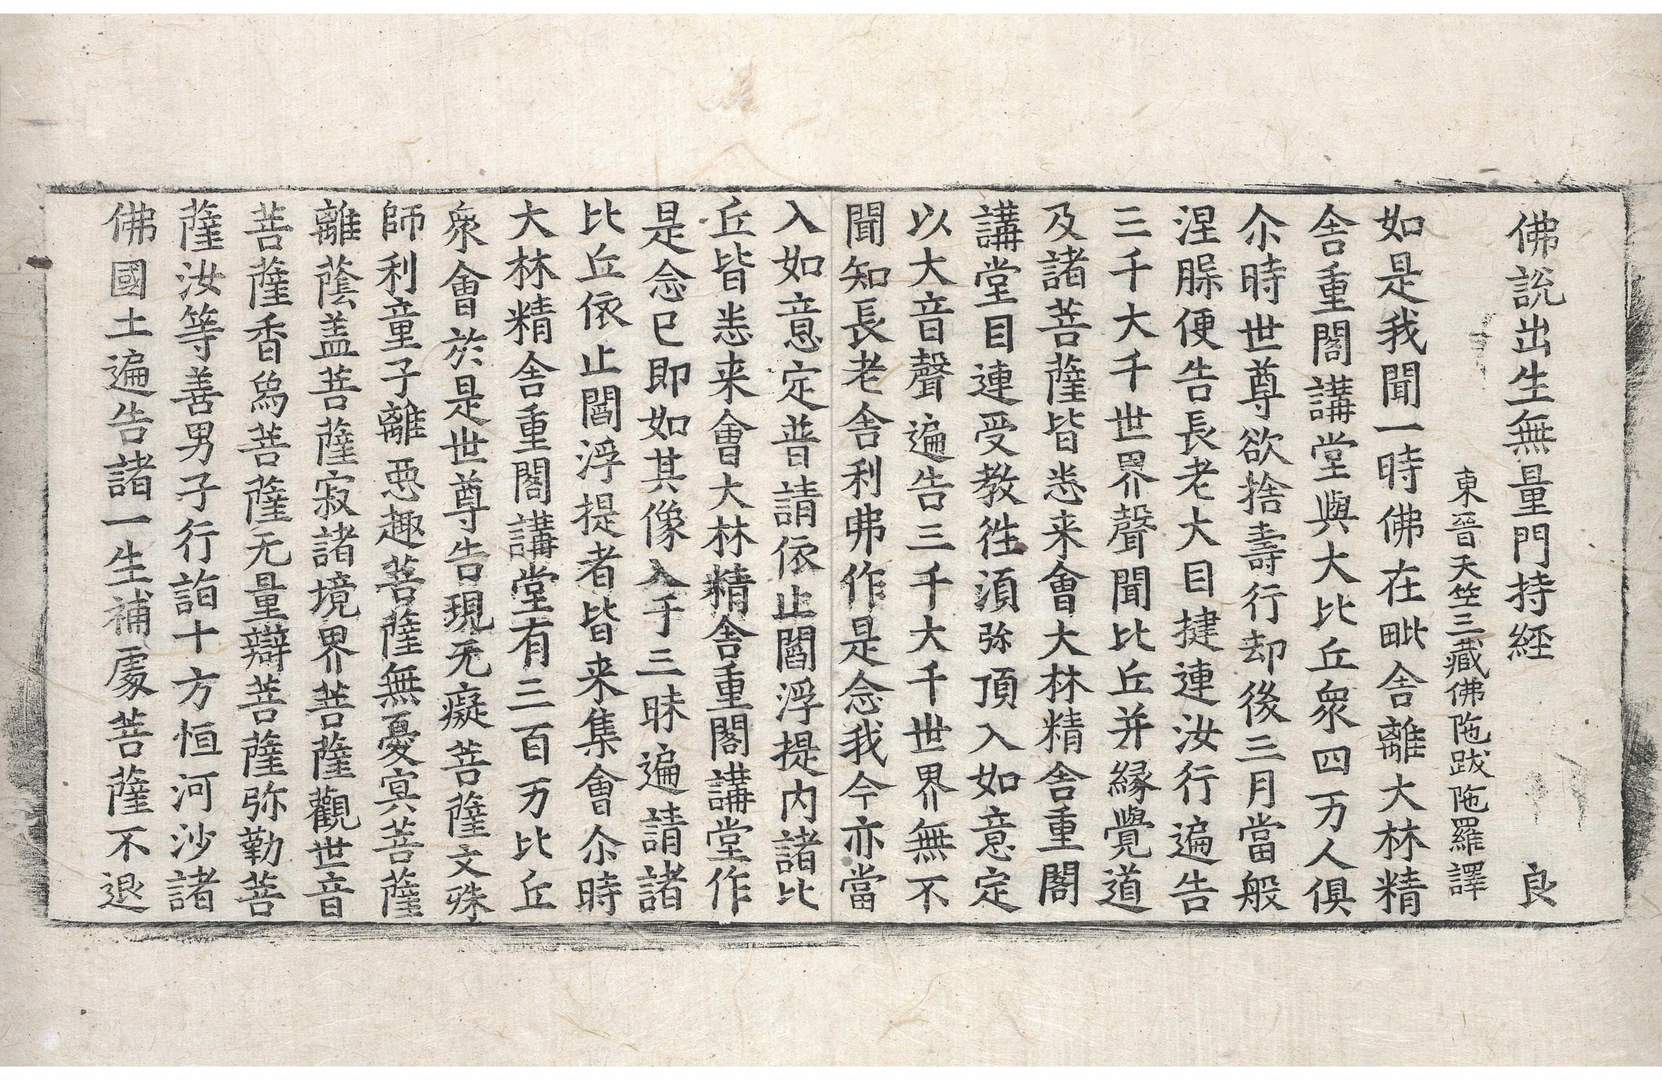 佛説出生無量門持經 良
東晉天竺三藏佛陁跋陁羅譯
如是我聞一時佛在毗舍離大林精
舍重閣講堂與大比丘衆四万人俱
尒時世尊欲捨壽行却後三月當般
涅槃便告長老大目揵連汝行遍告
三千大千世界聲聞比丘并縁覺道
及諸菩薩皆悉来會大林精舍重閣
講堂目連受教徃湏弥頂入如意定
以大音聲遍告三千大千世界無不
聞知長老舍利弗作是念我今亦當
入如意定普請依止閻浮提内諸比
丘皆悉来會大林精舍重閣講堂作
是念已即如其像入于三昧遍請諸
比丘依止閻浮提者皆来集會尒時
大林精舍重閣講堂有三百万比丘
衆會於是世尊告現无癡菩薩文殊
師利童子離惡趣菩薩無憂冥菩薩
離蔭盖菩薩寂諸境界菩薩觀世音
菩薩香爲菩薩无量辯菩薩弥勒菩
薩汝等善男子行詣十方恒河沙諸
佛國土遍告諸一生補處菩薩不退